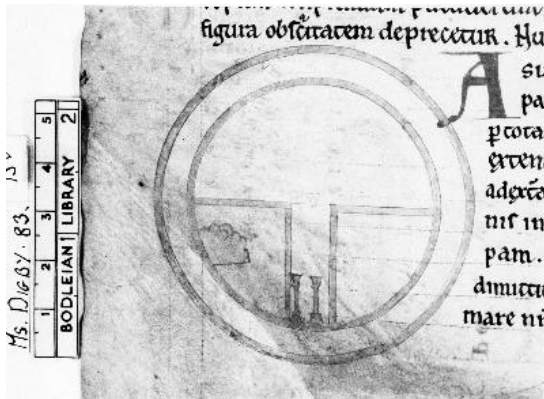 figura obscitatem deprecetur. Hu
A
su
pa
ptota
exten
adexta
nis in
pam.
dimittit
mare ni
Ms. DIGBY. 83.
BODLEIAN LIBRARY 2
1 2 3 4 5